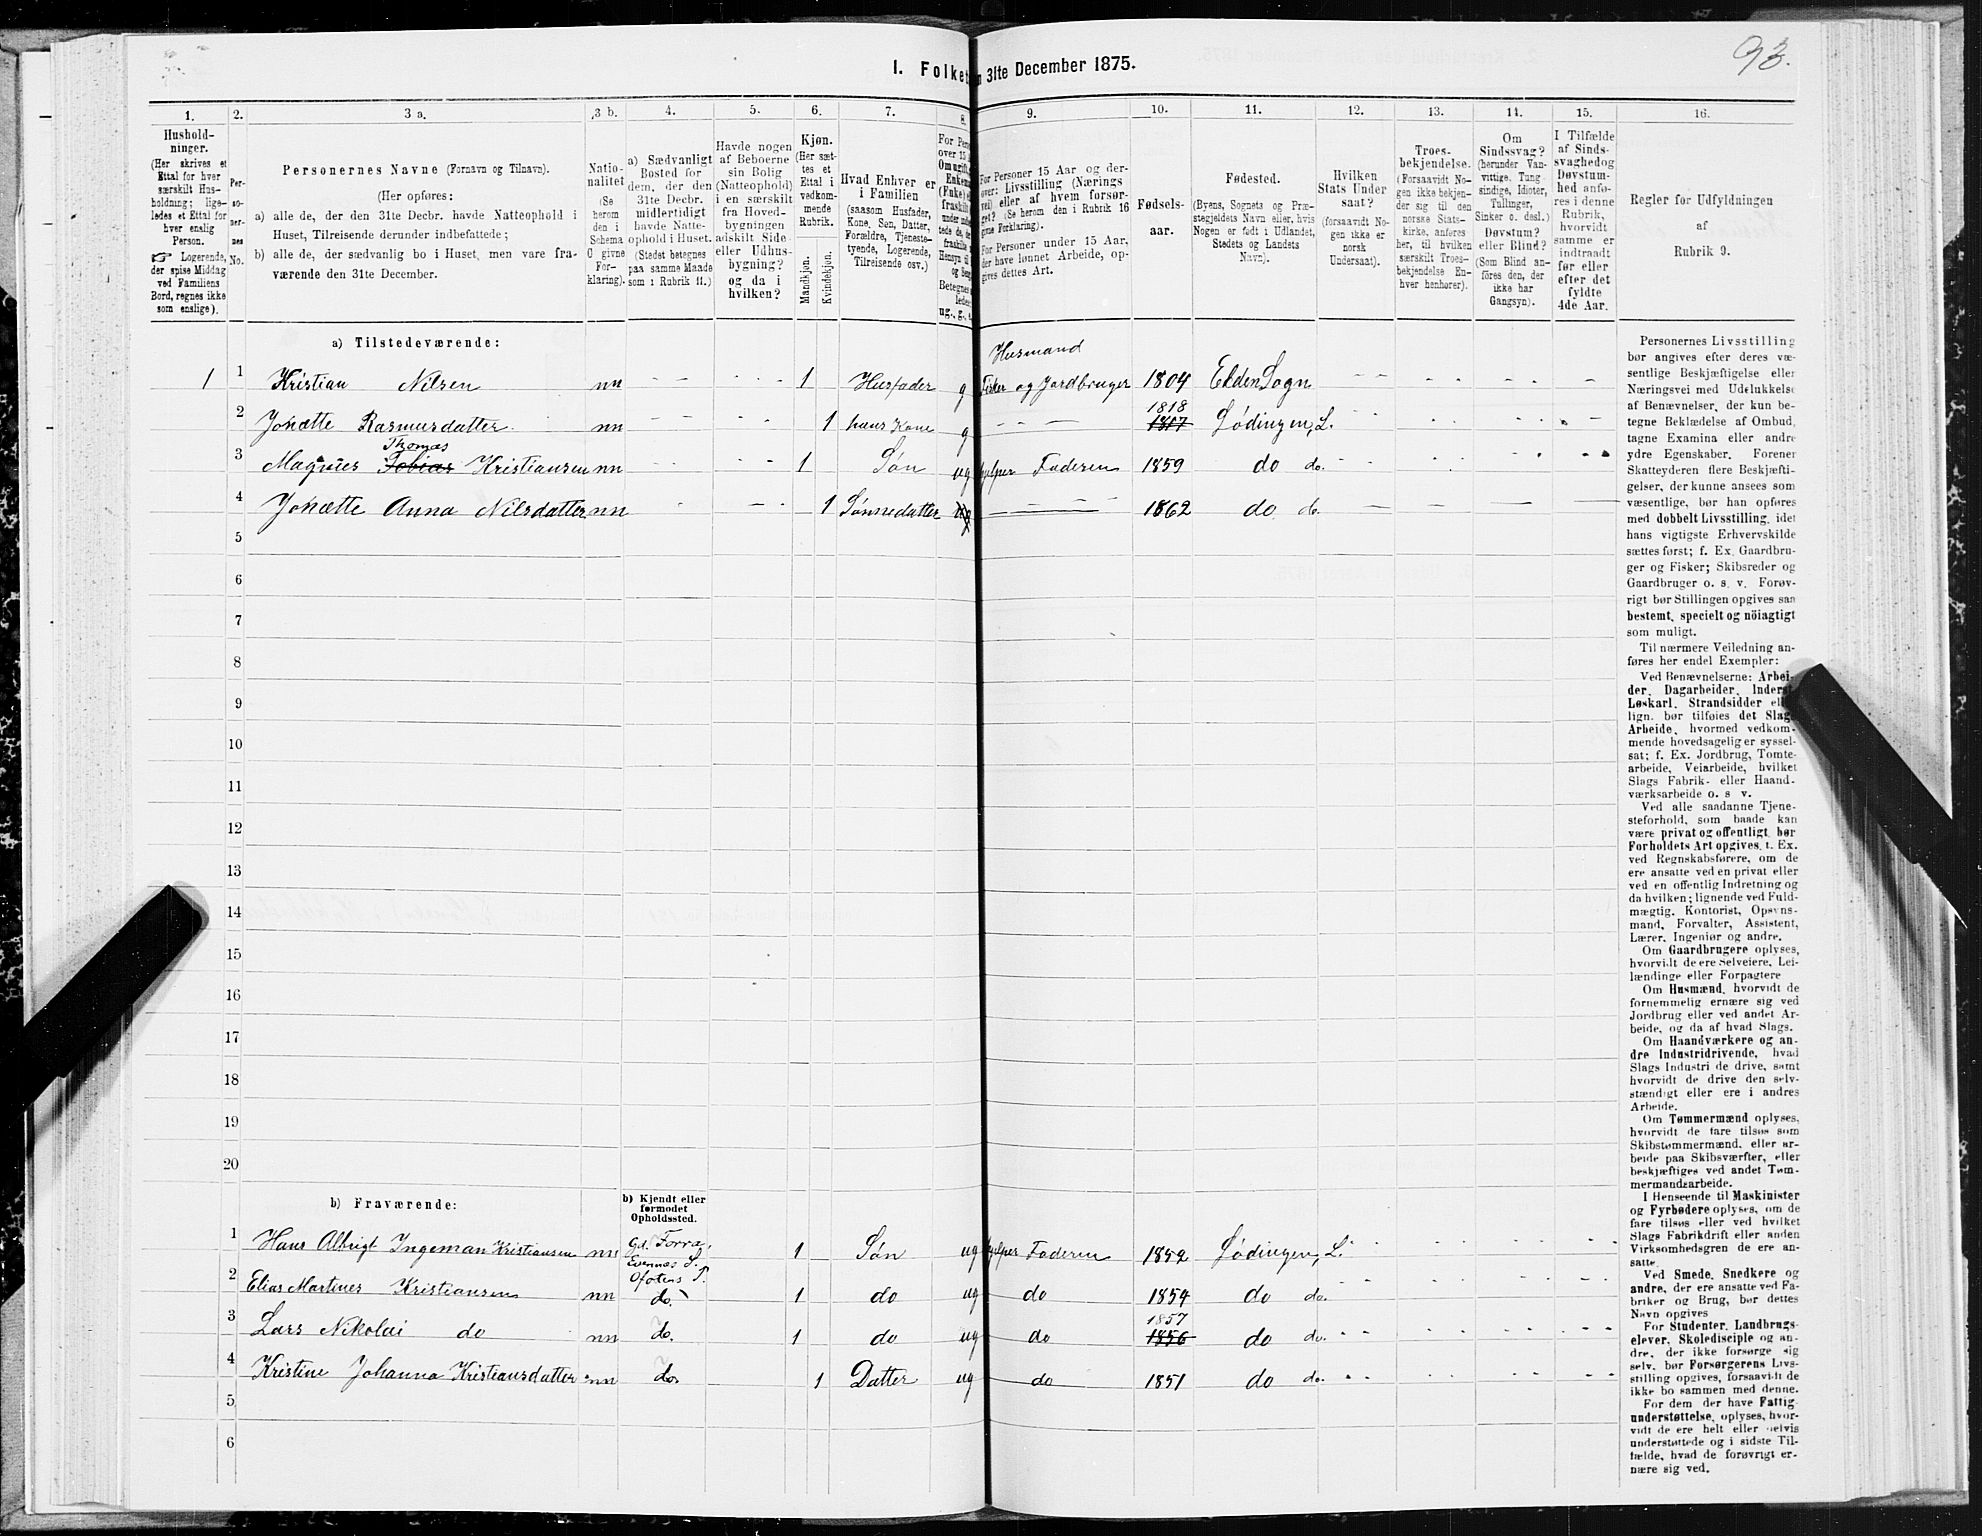 93.
I. Folket
n 31te December 1875.
1. 2. 3 a. 3 b. 4. 5. 6. 7. 8. 9. 10. 11. 12. 13. 14. 15. 16.
Hushold-
ninger.
(Her skrives et
Ettal for hver
særskilt Hus-
holdning; lige-
ledes et Ettal for
hver enslig
Person.
☞ Logerende,
der spise Middag
ved Familiens
Bord, regnes ikke
som enslige).
Per-
so-
ner-
nes
No.
Personernes Navne (Fornavn og Tilnavn).
(Her opføres:
a) alle de, der den 31te Decbr. havde Natteophold i
Huset, Tilreisende derunder indbefattede;
b) alle de, der sædvanlig bo i Huset, men vare fra-
værende den 31te December.
Natio-
nalitet
(Se
herom
den i
Schema
O givne
For-
klaring).
a) Sædvanligt
Bosted for
dem, der den
31te Decbr.
midlertidigt
havde Natte-
ophold i Huset.
(Stedet betegnes
paa samme Maade
som i Rubrik 11.)
Havde nogen
af Beboerne
sin Bolig
(Natteophold)
i en særskilt
fra Hoved-
bygningen
adskilt Side-
eller Udhus-
bygning?
og da i
hvilken?
Kjøn.
(Her sæt-
tes et
Ettal i
vedkom-
mende
Rubrik.
Mandkjøn.
Kvindekjøn.
Hvad Enhver er
i Familien
(saasom Husfader,
Kone, Søn, Datter,
Forældre, Tjeneste-
tyende, Logerende,
Tilreisende osv.)
For Pers
over 15 A
Om ugift,
Enkem
(Fraskilt
under
tede de,
fraskilte
Hensyn til
og Seng
Betegnes
ledes
ug., g., e.
For Personer 15 Aar og der-
over: Livsstilling (Nærings
vei) eller af hvem forsør-
get? (Se herom den i Rubrik 16
givne Forklaring).
For Personer under 15 Aar,
der have lønnet Arbeide, op-
gives dettes Art.
Fødsels-
aar.
Fødested.
(Byens, Sognets og Præ-
stegjeldets Navn eller, hvis
Nogen er født i Udlandet,
Stedets og Landets
Navn).
Hvilken
Stats Under
saat?
(forsaavidt No-
gen ikke er
norsk
Undersaat).
Troes-
bekjendelse.
(Forsaavidt No-
gen ikke bekjen-
der sig til den
norske Stats-
kirke, anføres
her, til hvilken
særskilt Troes-
bekjendelse En-
hver henhører).
Om
Sindssvag?
(herunder Van-
vittige, Tung-
sindige, Idioter,
Tullinger,
Sinker o. desl.)
Døvstum?
eller Blind?
(Som Blind an-
føres den, der
ikke har
Gangsyn).
I Tilfælde
af Sinds-
svaghedog
Døvstum-
hed anfø-
res i denne
Rubrik,
hvorvidt
samme er
indtraadt
før eller
efter det
fyldte
4de Aar.
Regler for Udfyldningen
af
Rubrik 9.
a) Tilstedeværende:
Husmand
1 1 Kristian Nilsen nn - - - - 1 Husfader g Fisker og Jordbruger 1804 Edden Sogn
1818
2 Jonette Rasmusdatter nn 1 hans Kone g - - - 1817 Lødingen, L.
Thomas
3 Magnus Tobias Kristiansen nn 1 Søn ug hjelper Faderen 1859 do do.
4 Jonette Anna Nilsdatter nn 1 Sønnedatter ug 1862 do do.
5
6
7
8
9
10
11
12
13
14
15
16
17
18
19
20
b) Fraværende:
b) Kjendt eller
formodet
Opholdssted.
1 Hans Albrigt Ingeman Kristiansen nn Gd. Forra, 1 Søn ug hjelper Faderen 1852 Lødingen, L.
Evennes S.
Ofotens P.
2 Elias Martines Kristiansen nn do. 1 do ug do 1854 do do.
1857
3 Lars Nikolai do nn do. 1 do ug do 1856 do do.
4 Kristine Johanna Kristiansdatter nn do. 1 Datter ug do 1851 do do.
5
6
Personernes Livsstilling
bør angives efter deres væ-
sentlige Beskjæftigelse eller
Næringsvei med Udelukkelse
af Benævnelser, der kun be-
tegne Beklædelse af Ombud,
tagne Examina eller andre
ydre Egenskaber. Forener
Skatteyderen flere Beskjæfti-
gelser, der kunne ansees som
væsentlige, bør han opføres
med dobbelt Livsstilling, idet
hans vigtigste Erhvervskilde
sættes først; f. Ex. Gaardbru-
ger og Fisker; Skibsreder og
Gaardbruger o. s. v. Forøv-
rigt bør Stillingen opgives saa
bestemt, specielt og nöiagtigt
som muligt.
Til nærmere Veiledning an-
føres her endel Exempler:
Ved Benævnelserne: Arbei-
der, Dagarbeider, Inderst,
Løskarl, Strandsidder eller
lign. bør tilføies det Slags
Arbeide, hvormed vedkom-
mende hovedsagelig er syssel-
sat; f. Ex. Jordbrug, Tomte-
arbeide, Veiarbeide, hvilket
Slags Fabrik- eller Haand-
værksarbeide o. s v.
Ved alle saadanne Tjene-
steforhold, som baade kan
være privat og offentligt, bør
Forholdets Art opgives, t. Ex.
ved Regnskabsførere, om de
ere ansatte ved en privat eller
ved en offentlig Indretning og
da hvilken; lignende ved Fuld-
mægtig, Kontorist, Opsyns-
mand, Forvalter, Assistent,
Lærer, Ingeniør og andre.
Om Gaardbrugere oplyses,
hvorvidt de ere Selveiere, Lei-
lændinge eller Forpagtere
Om Husmænd, hvorvidt de
fornemmelig ernære sig ved
Jordbrug eller ved andet Ar-
beide, og da af hvad Slags.
Om Haandværkere og an-
dre Industridrivende, hvad
Slags Industri de drive, samt
hvorvidt de drive den selv-
stændigt eller ere i andres
Arbeide.
Om Tømmermænd oplyses,
hvorvidt de fare tilsøs som
Skibstømmermænd, eller ar-
beide paa Skibsværfter, eller
beskjæftiges ved andet Tøm-
mermandsarbeide.
I Henseende til Maskinister
og Fyrbødere oplyses, om de
fare tilsøs eller ved hvilket
Slags Fabrikdrift eller anden
Virksomhedsgren de ere an-
satte.
Ved Smede, Snedkere og
andre, der ere ansatte ved Fa-
briker og Brug, bør dettes
Navn opgives
For Studenter, Landbrugs-
elever, Skoledisciple og an-
dre, der ikke forsørge sig
selv, bør Forsørgerens Livs-
stilling opgives, forsaavidt de
ikke bo sammen med denne.
For dem der have Fattig-
understøttelse, oplyses, hvor-
vidt de ere helt eller delvis
understøttede og i sidste Til-
fælde, hvad de forøvrigt er-
nære sig ved.